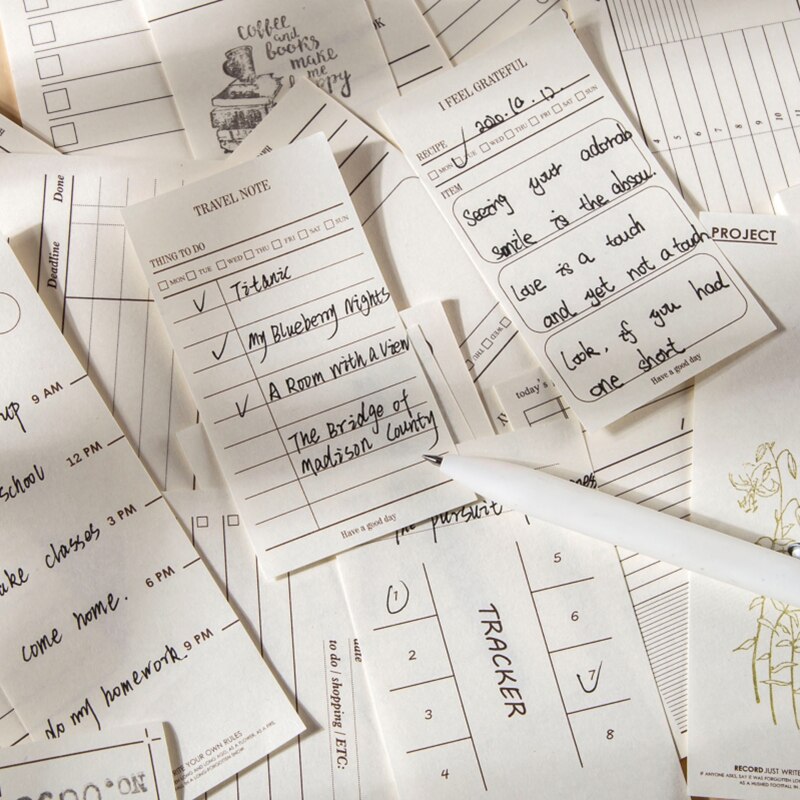 coffee
and
books
make
me
happy
TRAVEL NOTE
THING TO DO
MON TUE WED THU FRI SAT SUN
Titanic
My Blueberry Nights
A Room with a View
The Bridge of
Madison County
Have a good day
I FEEL GRATEFUL
RECIPE
MON TUE WED THU FRI SAT SUN
ITEM
Seeing your adorab
smile is the absou.
Love is a touch
and yet not a touch.
Look, if you had
one short
Have a good day
Done
Deadline
4 5 6 7 8 9 10 11 12
PROJECT
today's
up 9 AM
school 12 PM
ake classes 3 PM
come home. 6 PM
do my homework. 9 PM
WRITE YOUR OWN RULES
the pursuit
TRACKER
1
2
3
4
5
6
7
8
date
to do / shopping / ETC:
RECORD JUST WRITE
IF ANYONE ASKS, SAY IT WAS FORGOTTEN